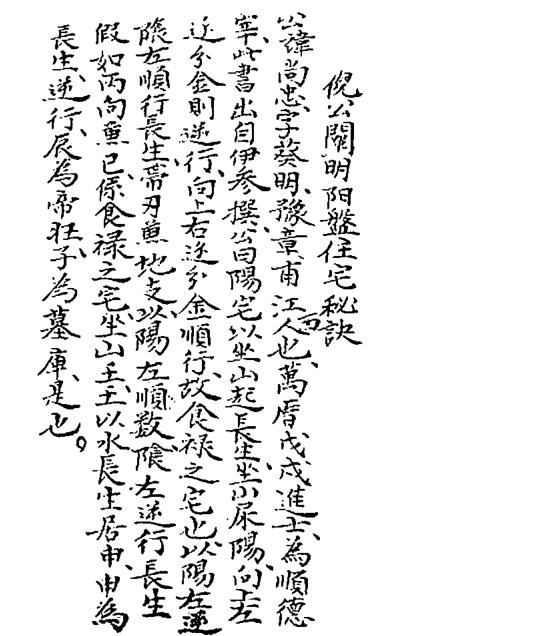 倪公闗明阳盤住宅秘訣
公諱尚忠字葵明豫章甫西江人也萬曆戊戌進士為順德
宰此書出自伊參撰公曰陽宅以坐山起長生坐小尿陽向上左
逆分金則逆行向上右逆分金順行故食禄之宅也以陽左逆
陰左順行長生帶刃兼地支以陽左順数陰左逆行長生
假如丙向兼巳係食禄之宅坐山壬壬以水長生居申申為
長生逆行辰為帝旺子為墓庫是也。